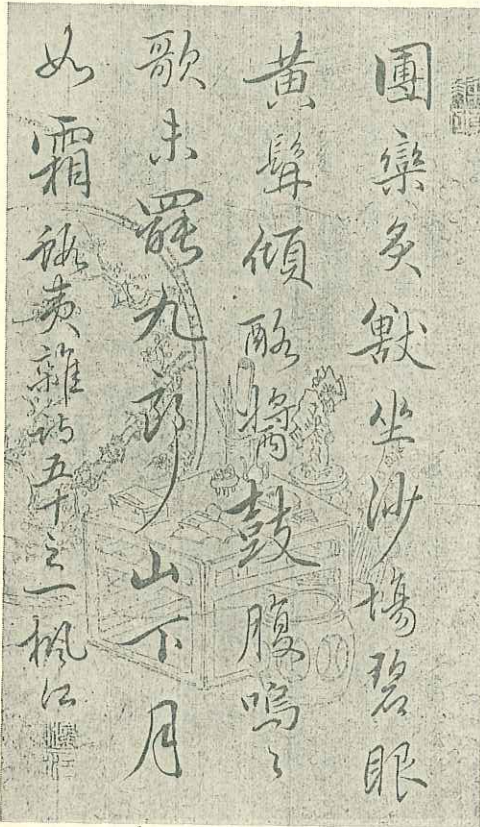 團欒炙獸坐沙場碧眼
黃髯傾酪漿鼓腹嗚〻
歌未罷九郎山下月
如霜 蝦夷雜詩五十之一 楓江